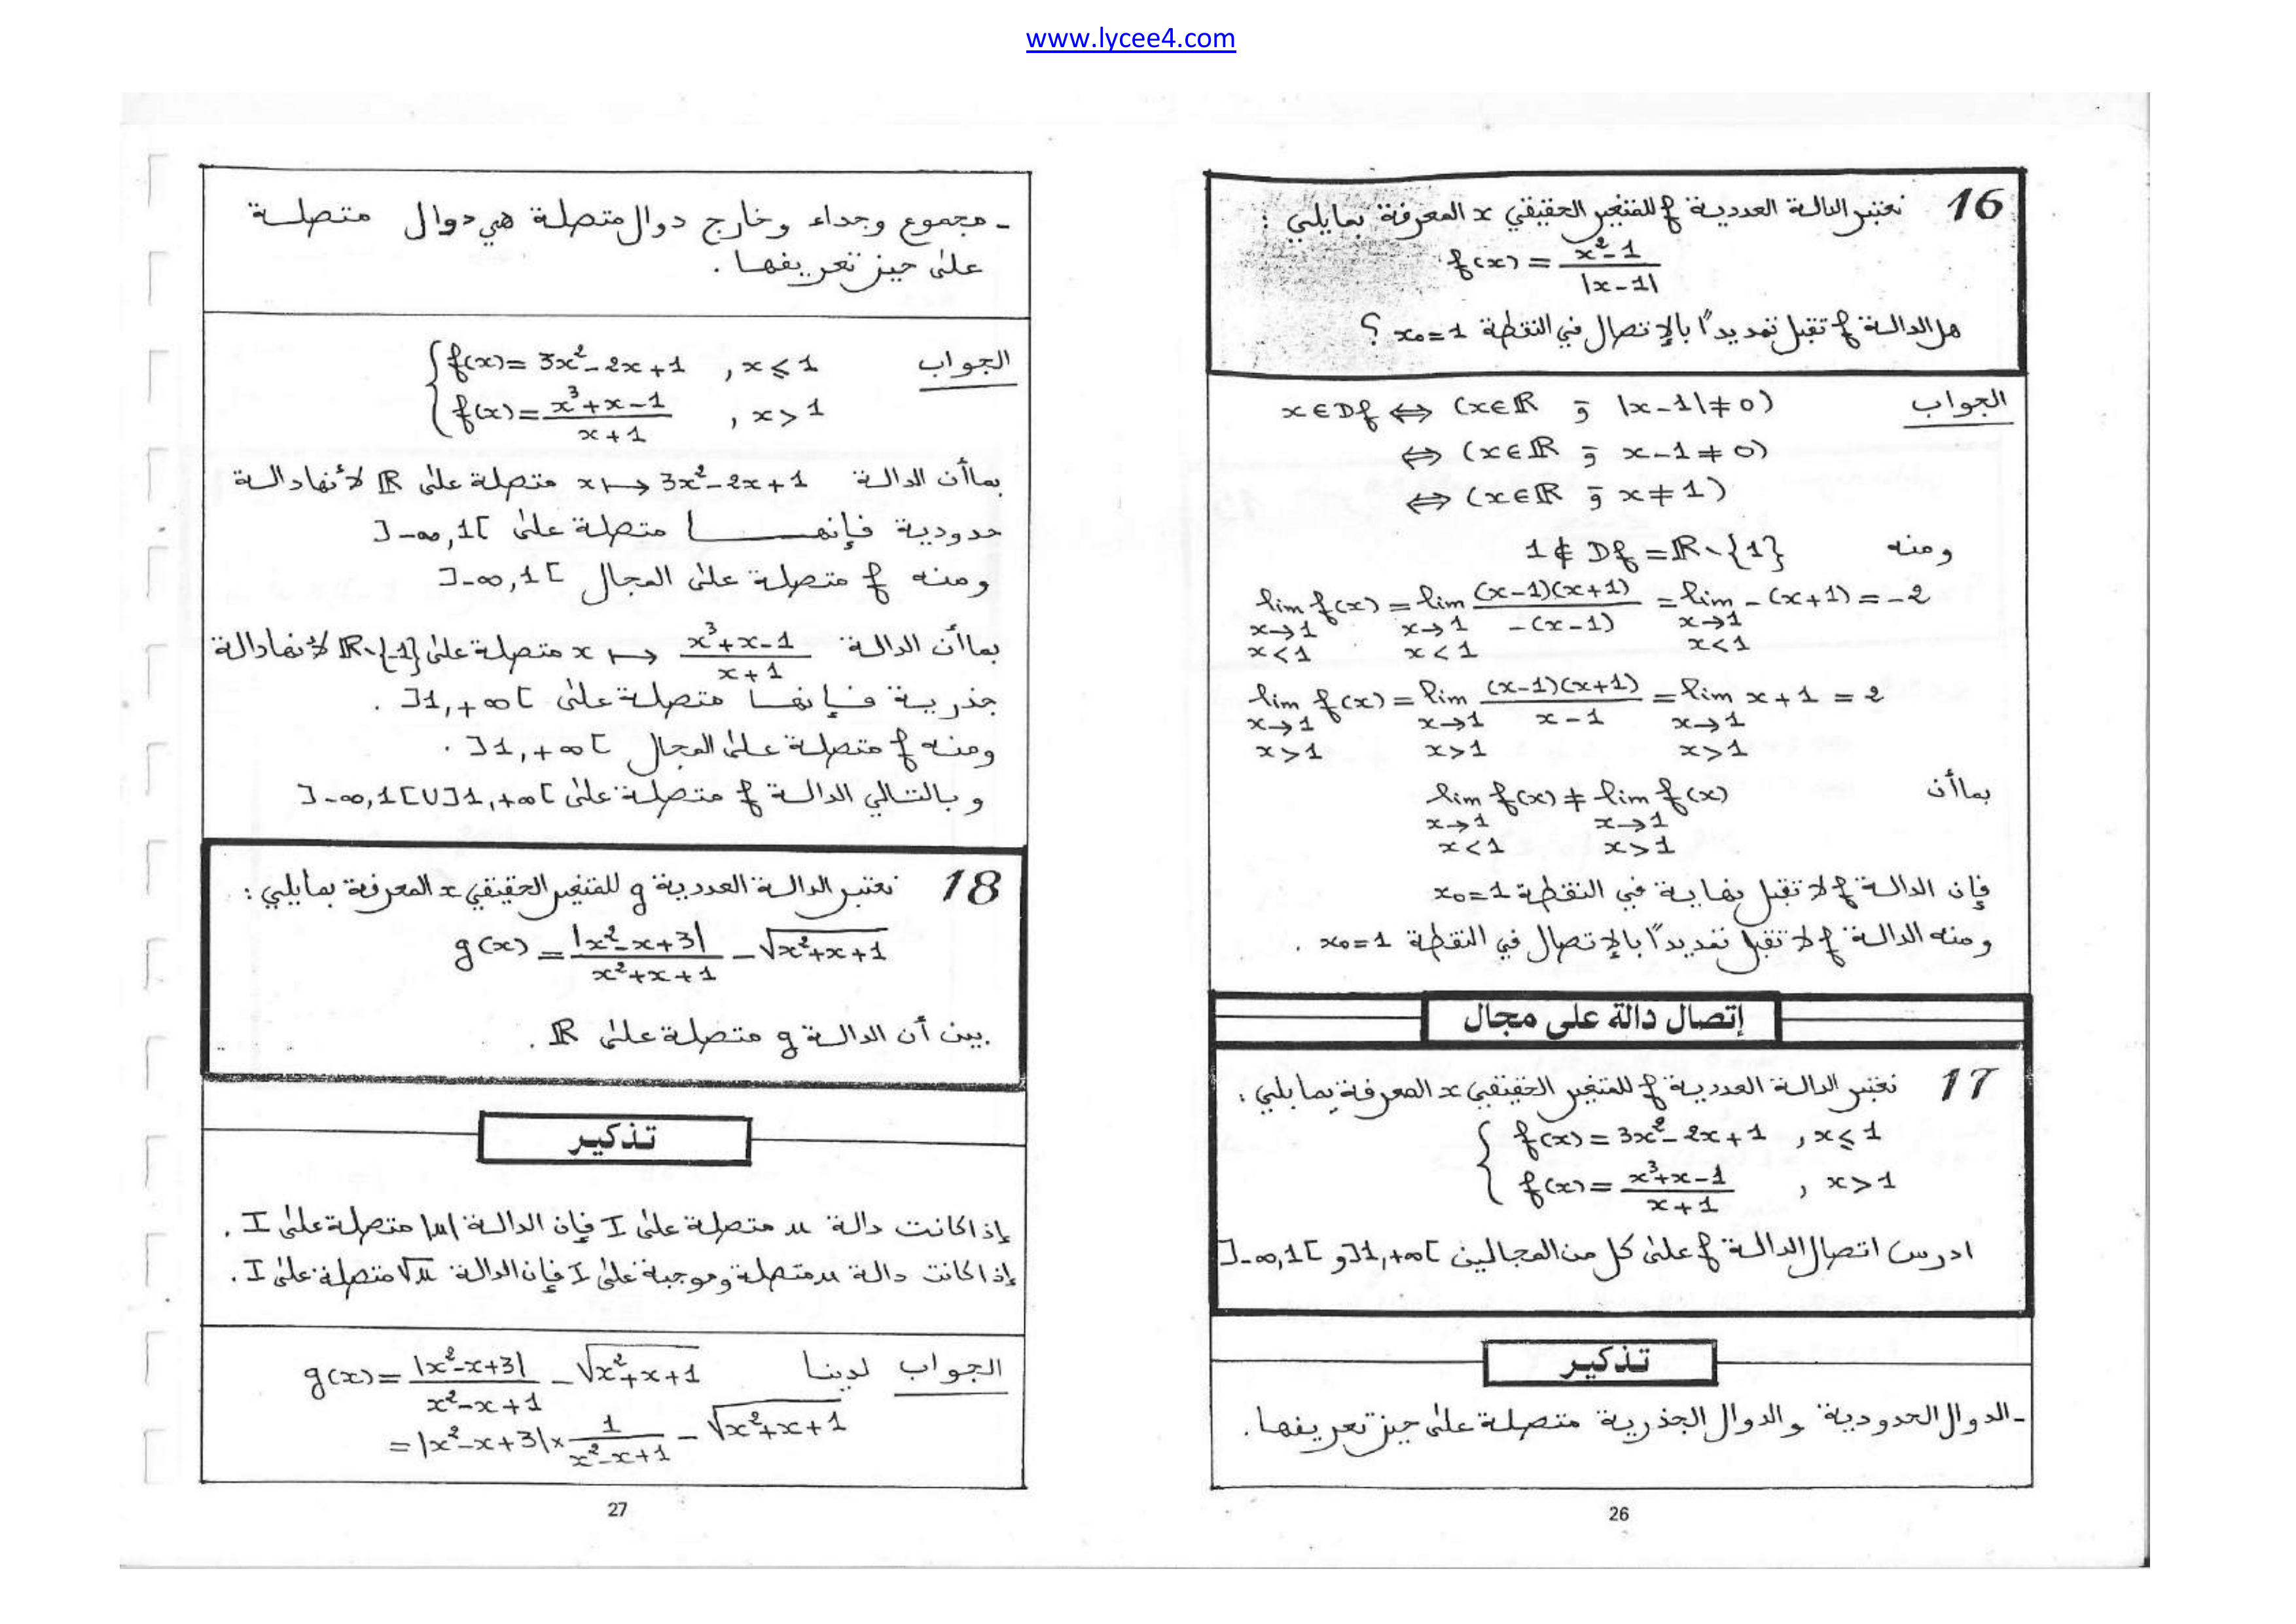 www.lycee4.com
16 نعتبر الدالة العددية f للمتغير الحقيقي x المعرفة بمايلي :
f(x) = (x²-1)/|x-1|
هل الدالة f تقبل تمديدًا بالإتصال في النقطة x₀=1 ؟
الجواب x∈Df ⇔ (x∈ℝ و |x-1|≠0)
⇔ (x∈ℝ و x-1≠0)
⇔ (x∈ℝ و x≠1)
ومنه 1∉Df=ℝ∖{1}
lim f(x) = lim (x-1)(x+1)/-(x-1) = lim -(x+1) = -2
x→1 x→1 x→1
x<1 x<1 x<1
lim f(x) = lim (x-1)(x+1)/x-1 = lim x+1 = 2
x→1 x→1 x→1
x>1 x>1 x>1
بماأن lim f(x) ≠ lim f(x)
x→1 x→1
x<1 x>1
فإن الدالة f لا تقبل نهاية في النقطة x₀=1
ومنه الدالة f لا تقبل تمديدًا بالإتصال في النقطة x₀=1 .
إتصال دالة على مجال
17 نعتبر الدالة العددية f للمتغير الحقيقي x المعرفة بمايلي :
{ f(x) = 3x²-2x+1 , x≤1
f(x) = (x³+x-1)/(x+1) , x>1
ادرس اتصال الدالة f على كل من المجالين ]1,+∞[ و ]-∞,1[
تذكير
- الدوال الحدودية والدوال الجذرية متصلة على حيز تعريفها .
26
- مجموع وجداء وخارج دوال متصلة هي دوال متصلة
على حيز تعريفها .
الجواب { f(x) = 3x²-2x+1 , x≤1
f(x) = (x³+x-1)/(x+1) , x>1
بماأن الدالة x ⟼ 3x²-2x+1 متصلة على ℝ لأنها دالة
حدودية فإنهـــــا متصلة على ]-∞,1[
ومنه f متصلة على المجال ]-∞,1[
بماأن الدالة x ⟼ (x³+x-1)/(x+1) متصلة على ℝ∖{-1} لأنها دالة
جذرية فإنها متصلة على ]1,+∞[ .
ومنه f متصلة على المجال ]1,+∞[ .
وبالتالي الدالة f متصلة على ]-∞,1[∪]1,+∞[
18 نعتبر الدالة العددية g للمتغير الحقيقي x المعرفة بمايلي :
g(x) = |x²-x+3|/(x²+x+1) - √(x²+x+1)
بين أن الدالة g متصلة على ℝ .
تذكير
إذا كانت دالة u متصلة على I فإن الدالة |u| متصلة على I .
إذا كانت دالة u متصلة وموجبة على I فإن الدالة √u متصلة على I .
الجواب لدينا g(x) = |x²-x+3|/(x²-x+1) - √(x²+x+1)
= |x²-x+3| × 1/(x²-x+1) - √(x²+x+1)
27